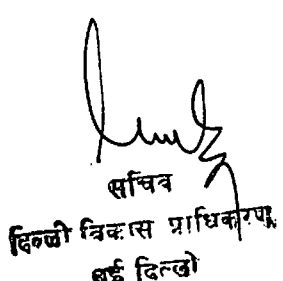 सचिव
दिल्ली विकास प्राधिकरण,
नई दिल्ली